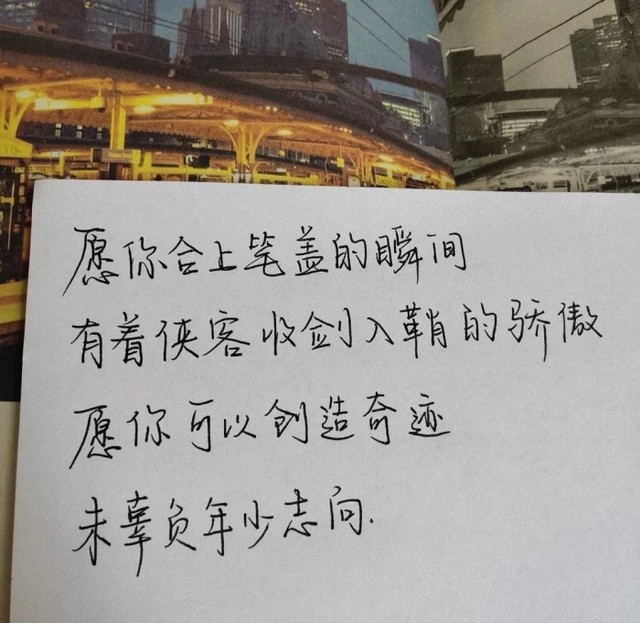 愿你合上笔盖的瞬间
有着侠客收剑入鞘的骄傲
愿你可以创造奇迹
未辜负年少志向.